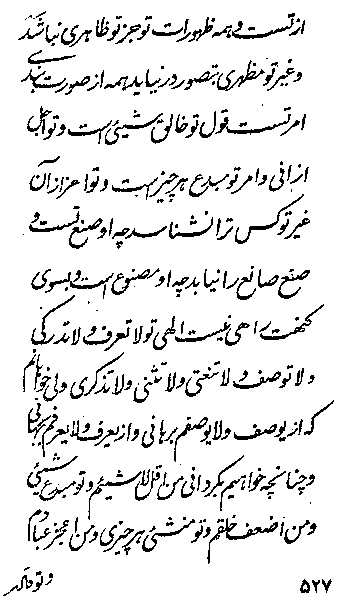 از تست و همه ظهورات تو جز تو ظاهری نباشد
و غیر تو مظهری بتصور در نیاید همه از صورت بندی
امر تست قول تو خالق شیئی است و تو اجل
از انی و امر تو مبدع هر چیز است و تو اعز از آن
غیر تو کس ترا نشناسد چه او صنع تست و
صنع صانع را نیابد چه او مصنوع است و بسوی
کنهت راهی نیست الهی تو لا تعرف و لا تدرکی
و لا توصف و لا تنعتی و لا تثنی و لا تذکری ولی خواهم
که از یوصف و لا یوصفم برهانی و از یعرف و لا یعرفم
و چنانچه خواهیم بگردانی من اقل لا شیئم و تو مبدع شیئی
و من اضعف خلقم و تو منشئ هر چیزی و من اعجز عبادم
و تو قادر
۵۲۷